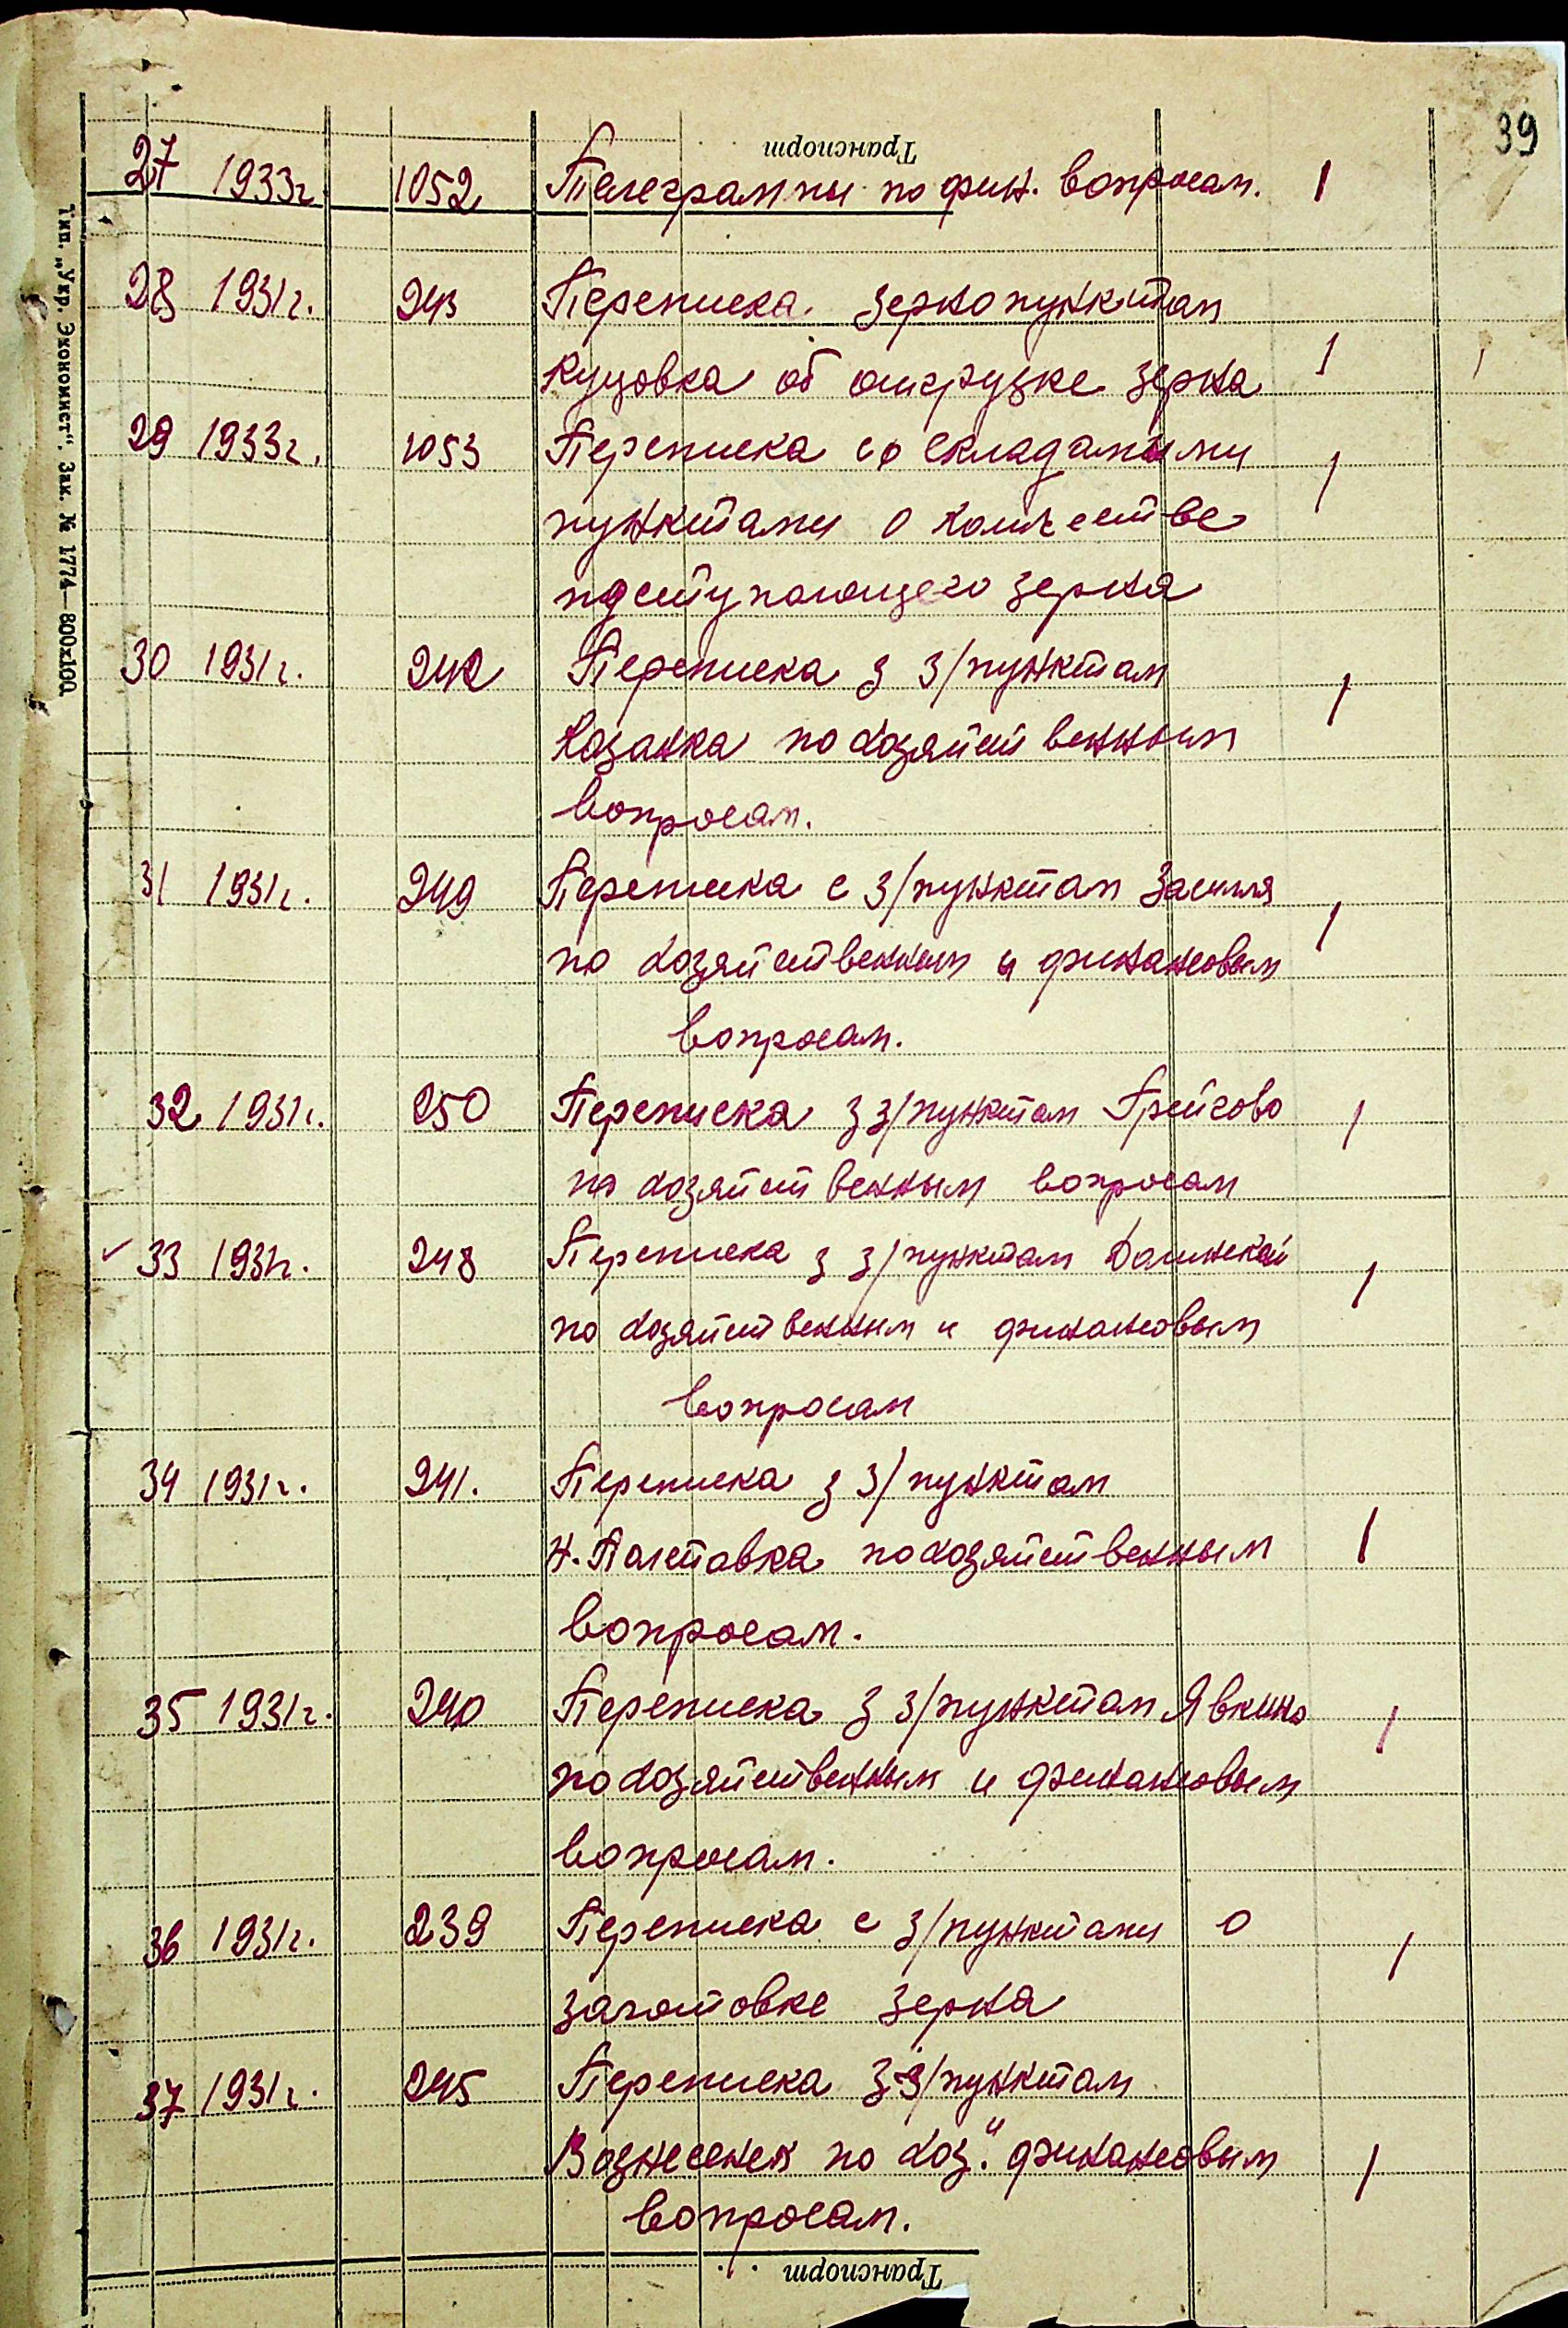 39
Транспорт
27 1933г. 1052 Телеграммы по фин. вопросам. 1
28 1931г. 243 Переписка зернопунктам
Куцовка об отгрузке зерна 1
29 1933г. 1053 Переписка со складами 1
пунктами о количестве
поступающего зерна
30 1931г. 242 Переписка з з/пунктам 1
Казанка по хозяйственным
вопросам.
31 1931г. 249 Переписка с з/пунктам Засилля 1
по хозяйственным и финансовым
вопросам.
32 1931г. 250 Переписка з з/пунктам Грейгово 1
по хозяйственным вопросам
33 1931г. 248 Переписка з з/пунктам 1
по хозяйственным и финансовым
вопросам
34 1931г. 241. Переписка з з/пунктам
Н. Полтавка по хозяйственным 1
вопросам.
35 1931г. 240 Переписка з з/пунктам Явкино 1
по хозяйственным и финансовым
вопросам.
36 1931г. 239 Переписка с з/пунктами о 1
заготовке зерна
37 1931г. 245 Переписка з з/пунктам
Вознесенск по хоз. и финансовым 1
вопросам.
Транспорт
Тип. „Укр. Экономист". Зак. № 1774—800х100.